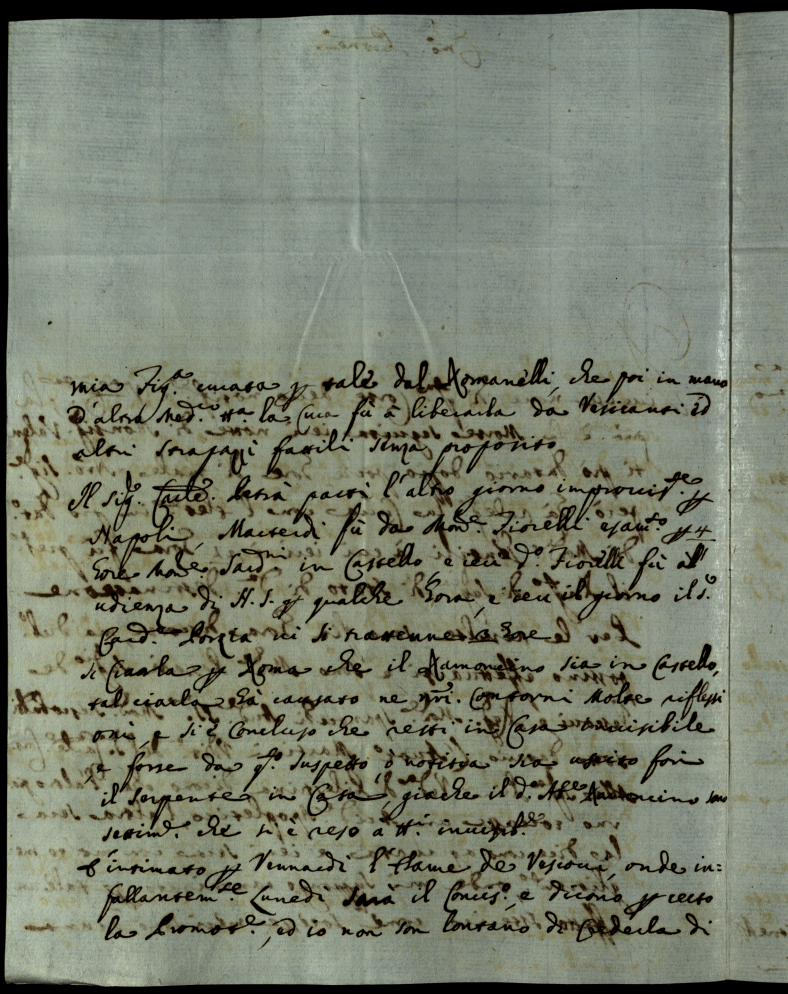 mia Fig.ª curata p tale dal Romanelli, che poi in mano
D'altro Med.º la Cura fù à liberarla da Vesicanti ed
altri strapazzi fattili senza proposito
Il Sig.r partì l'altro giorno improvis.te p
Napoli, Martedi fù da Mon.r Fiorelli esam.to p 4
hore Mon.r in Castello e ieri d.º Fiorelli fù all'
udienza di N. S. p qualche hora, e ieri il giorno il S.r
Card.e Porzia vi si trattenne hore
Si Ciarla p Roma che il sia in Castello,
tal ciarla hà causato ne n̄ri Contorni Molte riflessi
oni e si è Concluso che resti in Casa invisibile
e forse da q.º suspetto, ò notitia sia uscito fori
il serpente in Casa, giache il d.º sono
settim.e che si è reso à invisib.e
È intimato p Vennardi l'Esame de Vescovi, onde in=
fallantem.te Lunedi sarà il Concis.º, e dicono p certo
la Promot.e, ed io non son lontano di Crederla di